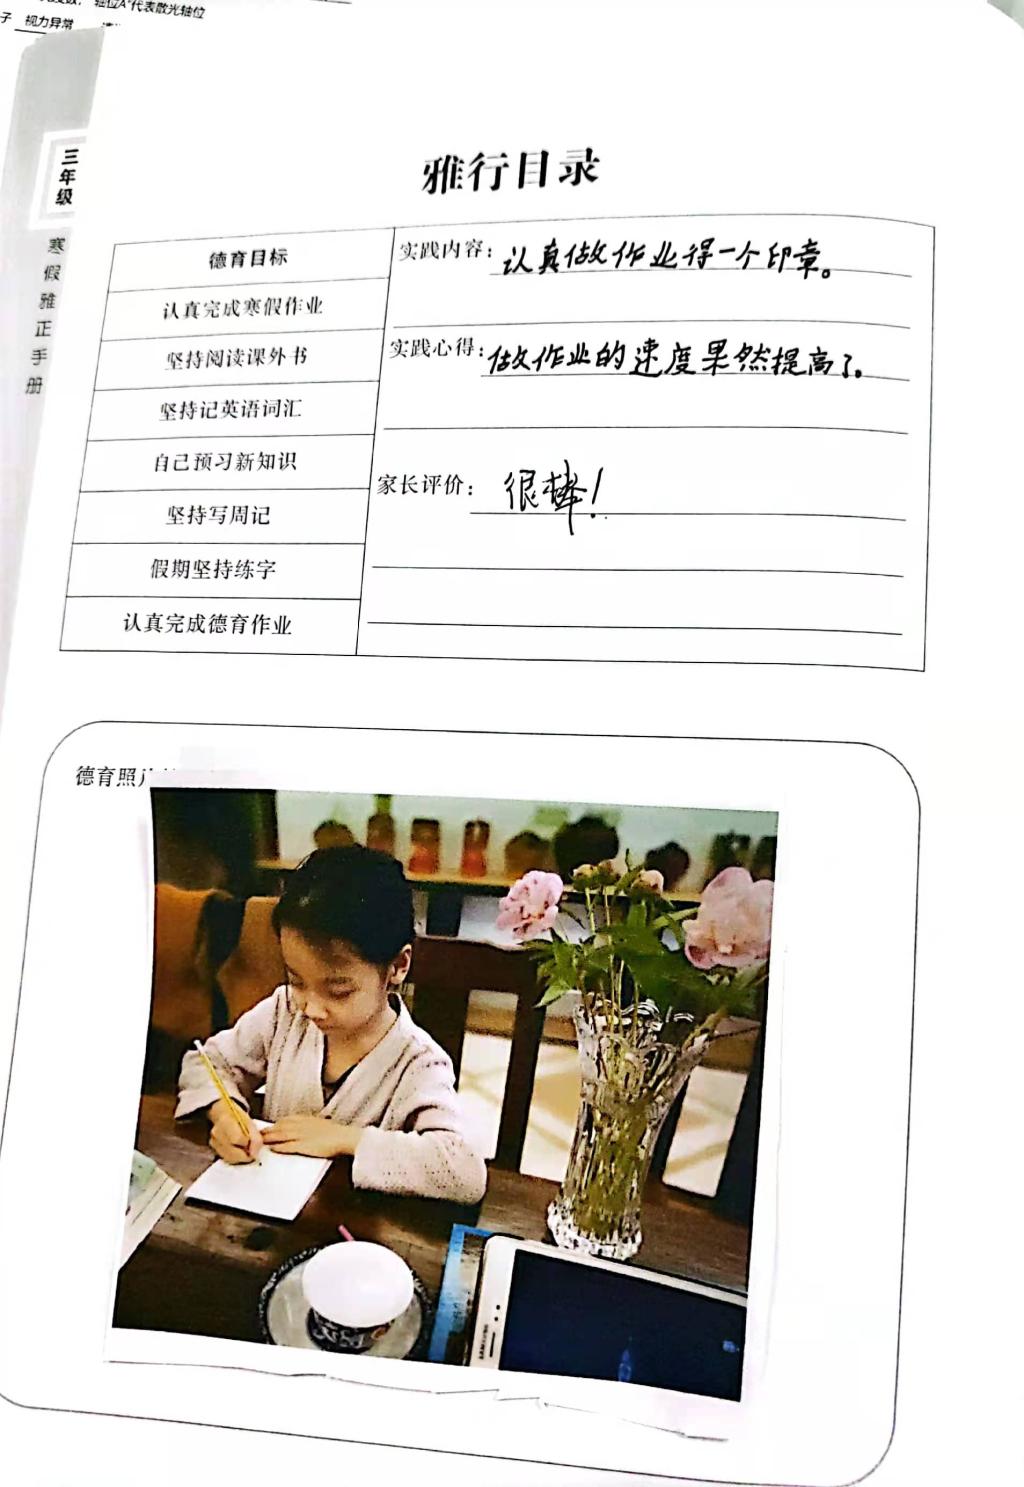 轴位A"代表散光轴位
视力异常
三年级
寒假雅正手册
雅行目录
德育目标
认真完成寒假作业
坚持阅读课外书
坚持记英语词汇
自己预习新知识
坚持写周记
假期坚持练字
认真完成德育作业
实践内容：认真做作业得一个印章。
实践心得：做作业的速度果然提高了。
家长评价：很棒！
德育照片